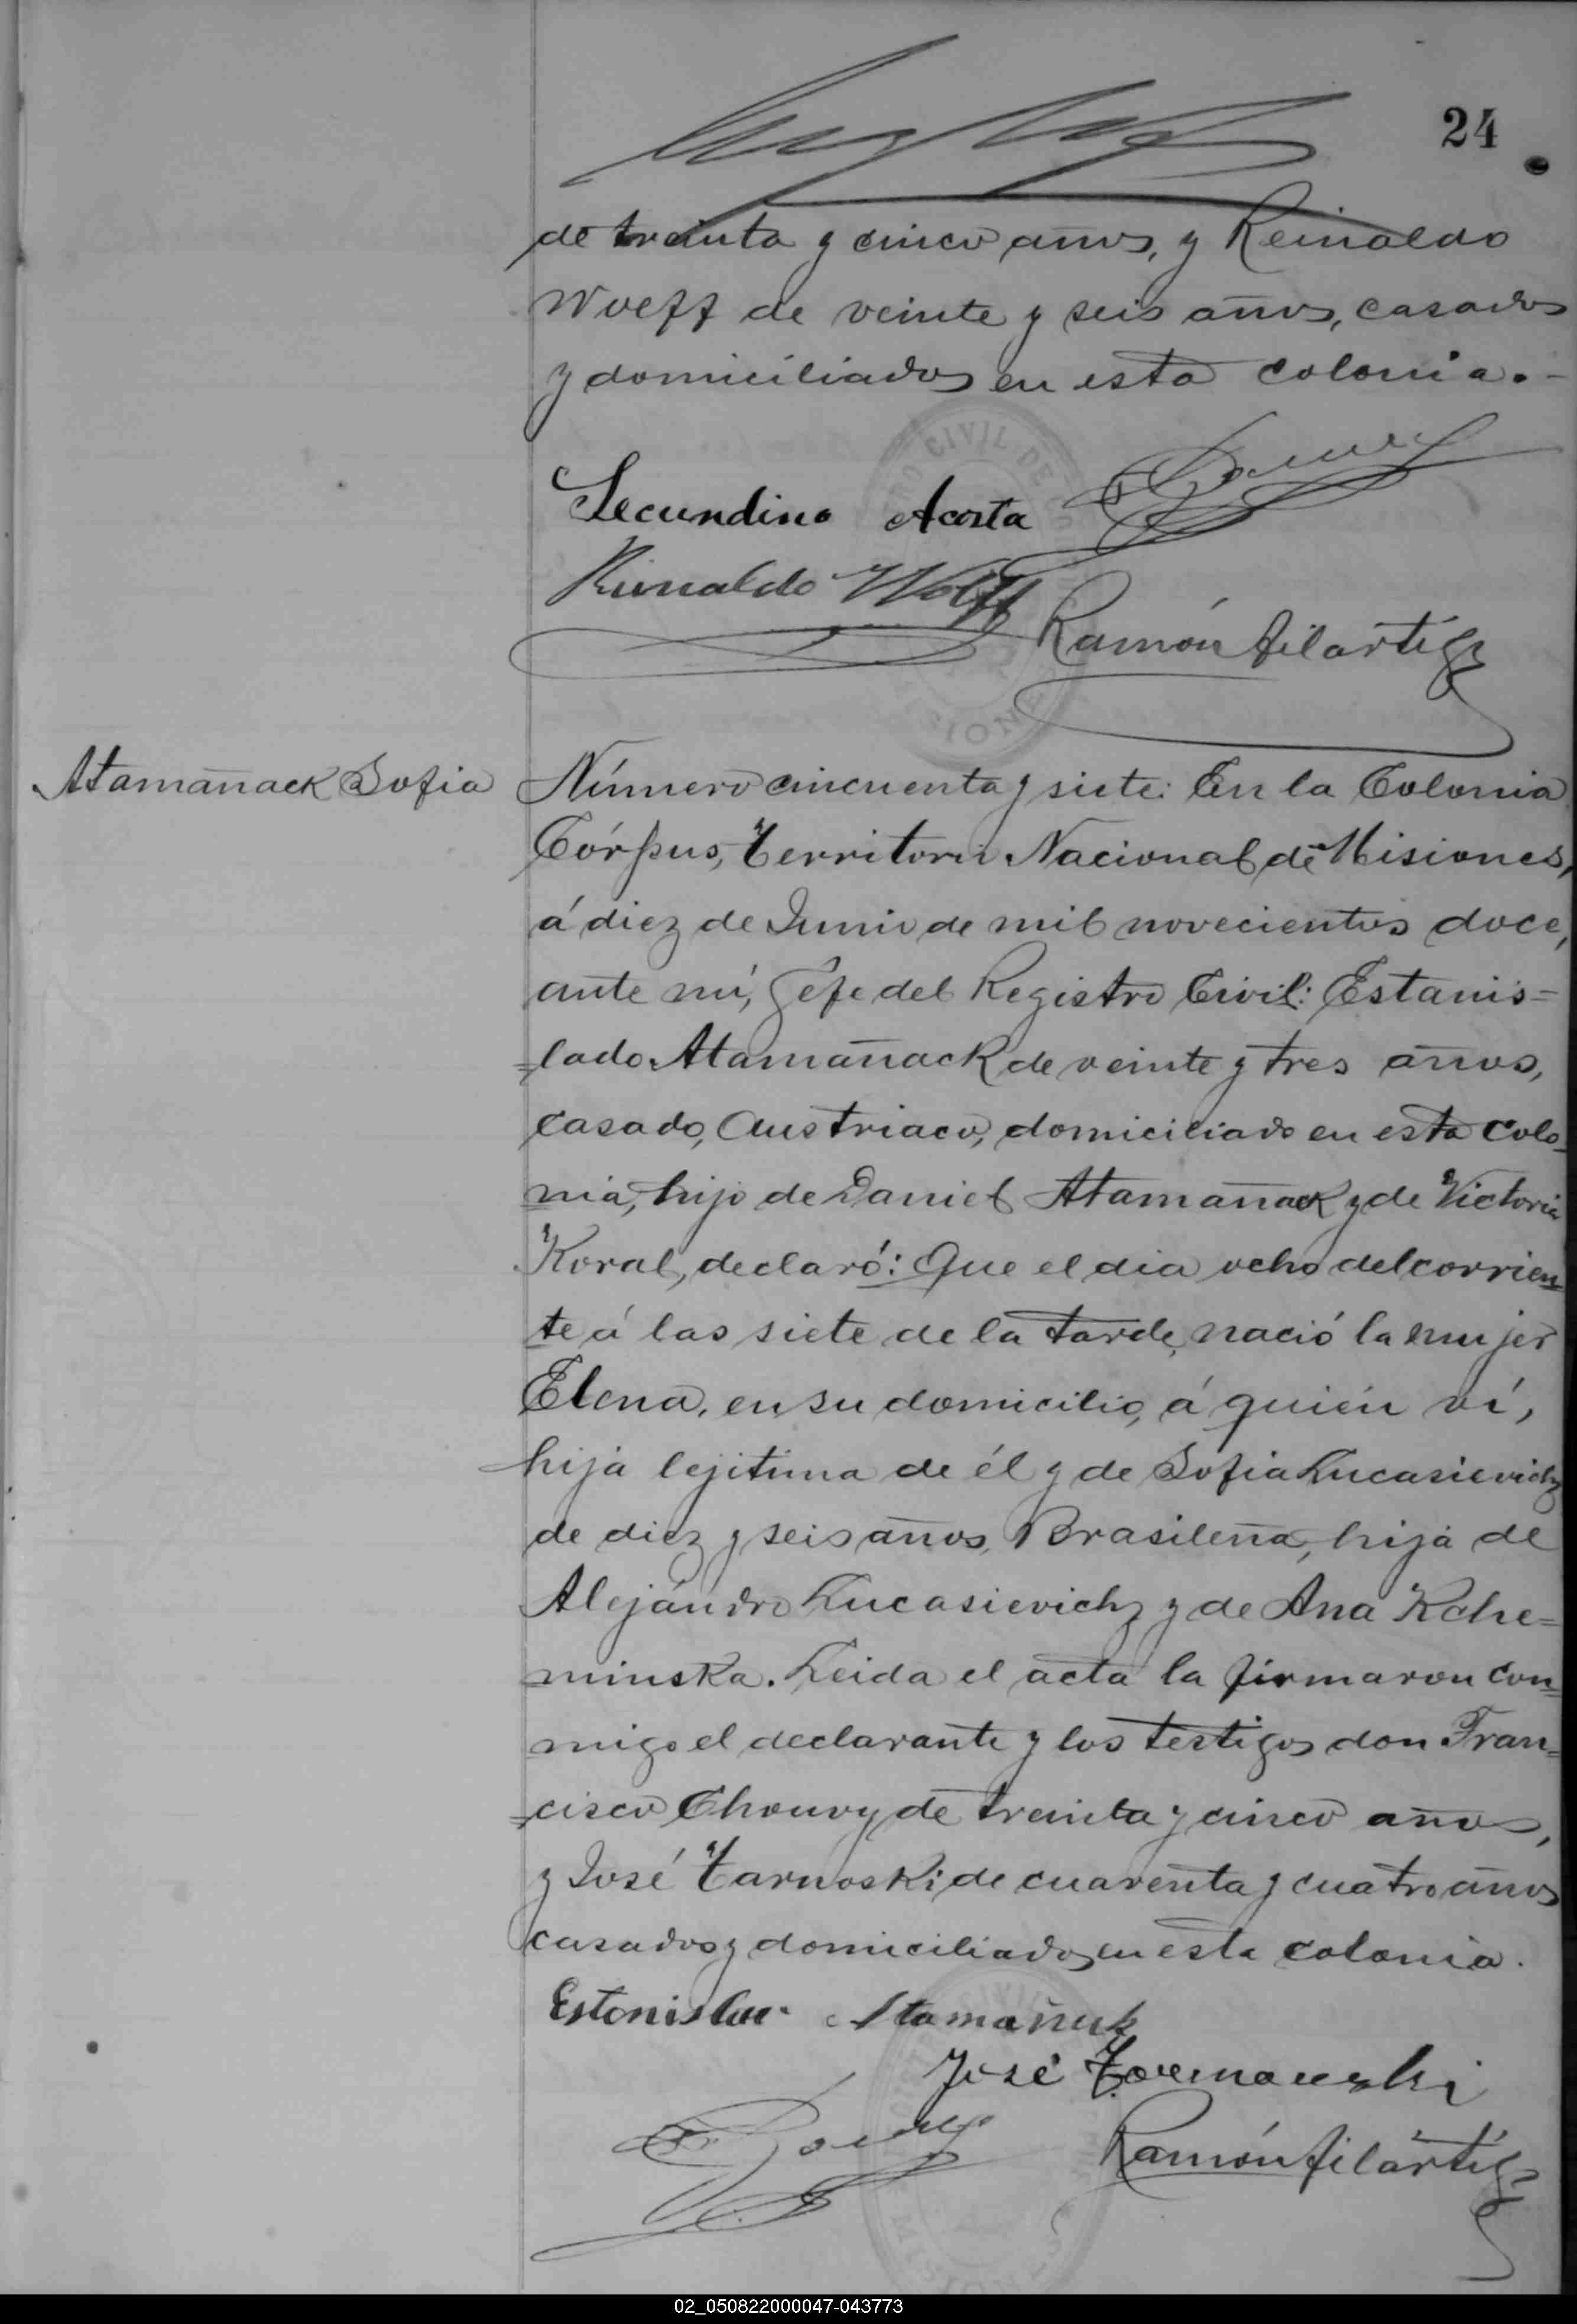 24
de treinta y cinco años, y Reinaldo
Woeff de veinte y seis años, casados
y domiciliados en esta colonia.-
Secundino Acosta
Rienaldo Wolff
Ramón Filártiga
Atamañack Sofia
Número cincuenta y siete: En la Colonia
Córpus, Territorio Nacional de Misiones,
á diez de Junio de mil novecientos doce,
ante mí, Géfe del Registro Civil: Estanis=
=lado Atamañack de veinte y tres años,
casado, Austriaco, domiciliado en esta colo-
nia, hijo de Daniel Atamañack y de Victoria
Koral, declaró: Que el dia ocho del corrien-
te á las siete de la tarde, nació la mujer
Elena, en su domicilio, á quién ví,
hija lejitima de él y de Sofia Lucasievichz
de diez y seis años, Brasileña, hija de
Alejándro Lucasievichz y de Ana Kche=
minska. Leida el acta la firmaron con=
migo el declarante y los testigos don Fran=
=cisco Chouvy de treinta y cinco años,
y José Tarnoski de cuarenta y cuatro años
casados y domiciliados en esta colonia.
Estanislao Atamañuk
José
Ramón Filártiga
CIVIL DE
02_050822000047-043773